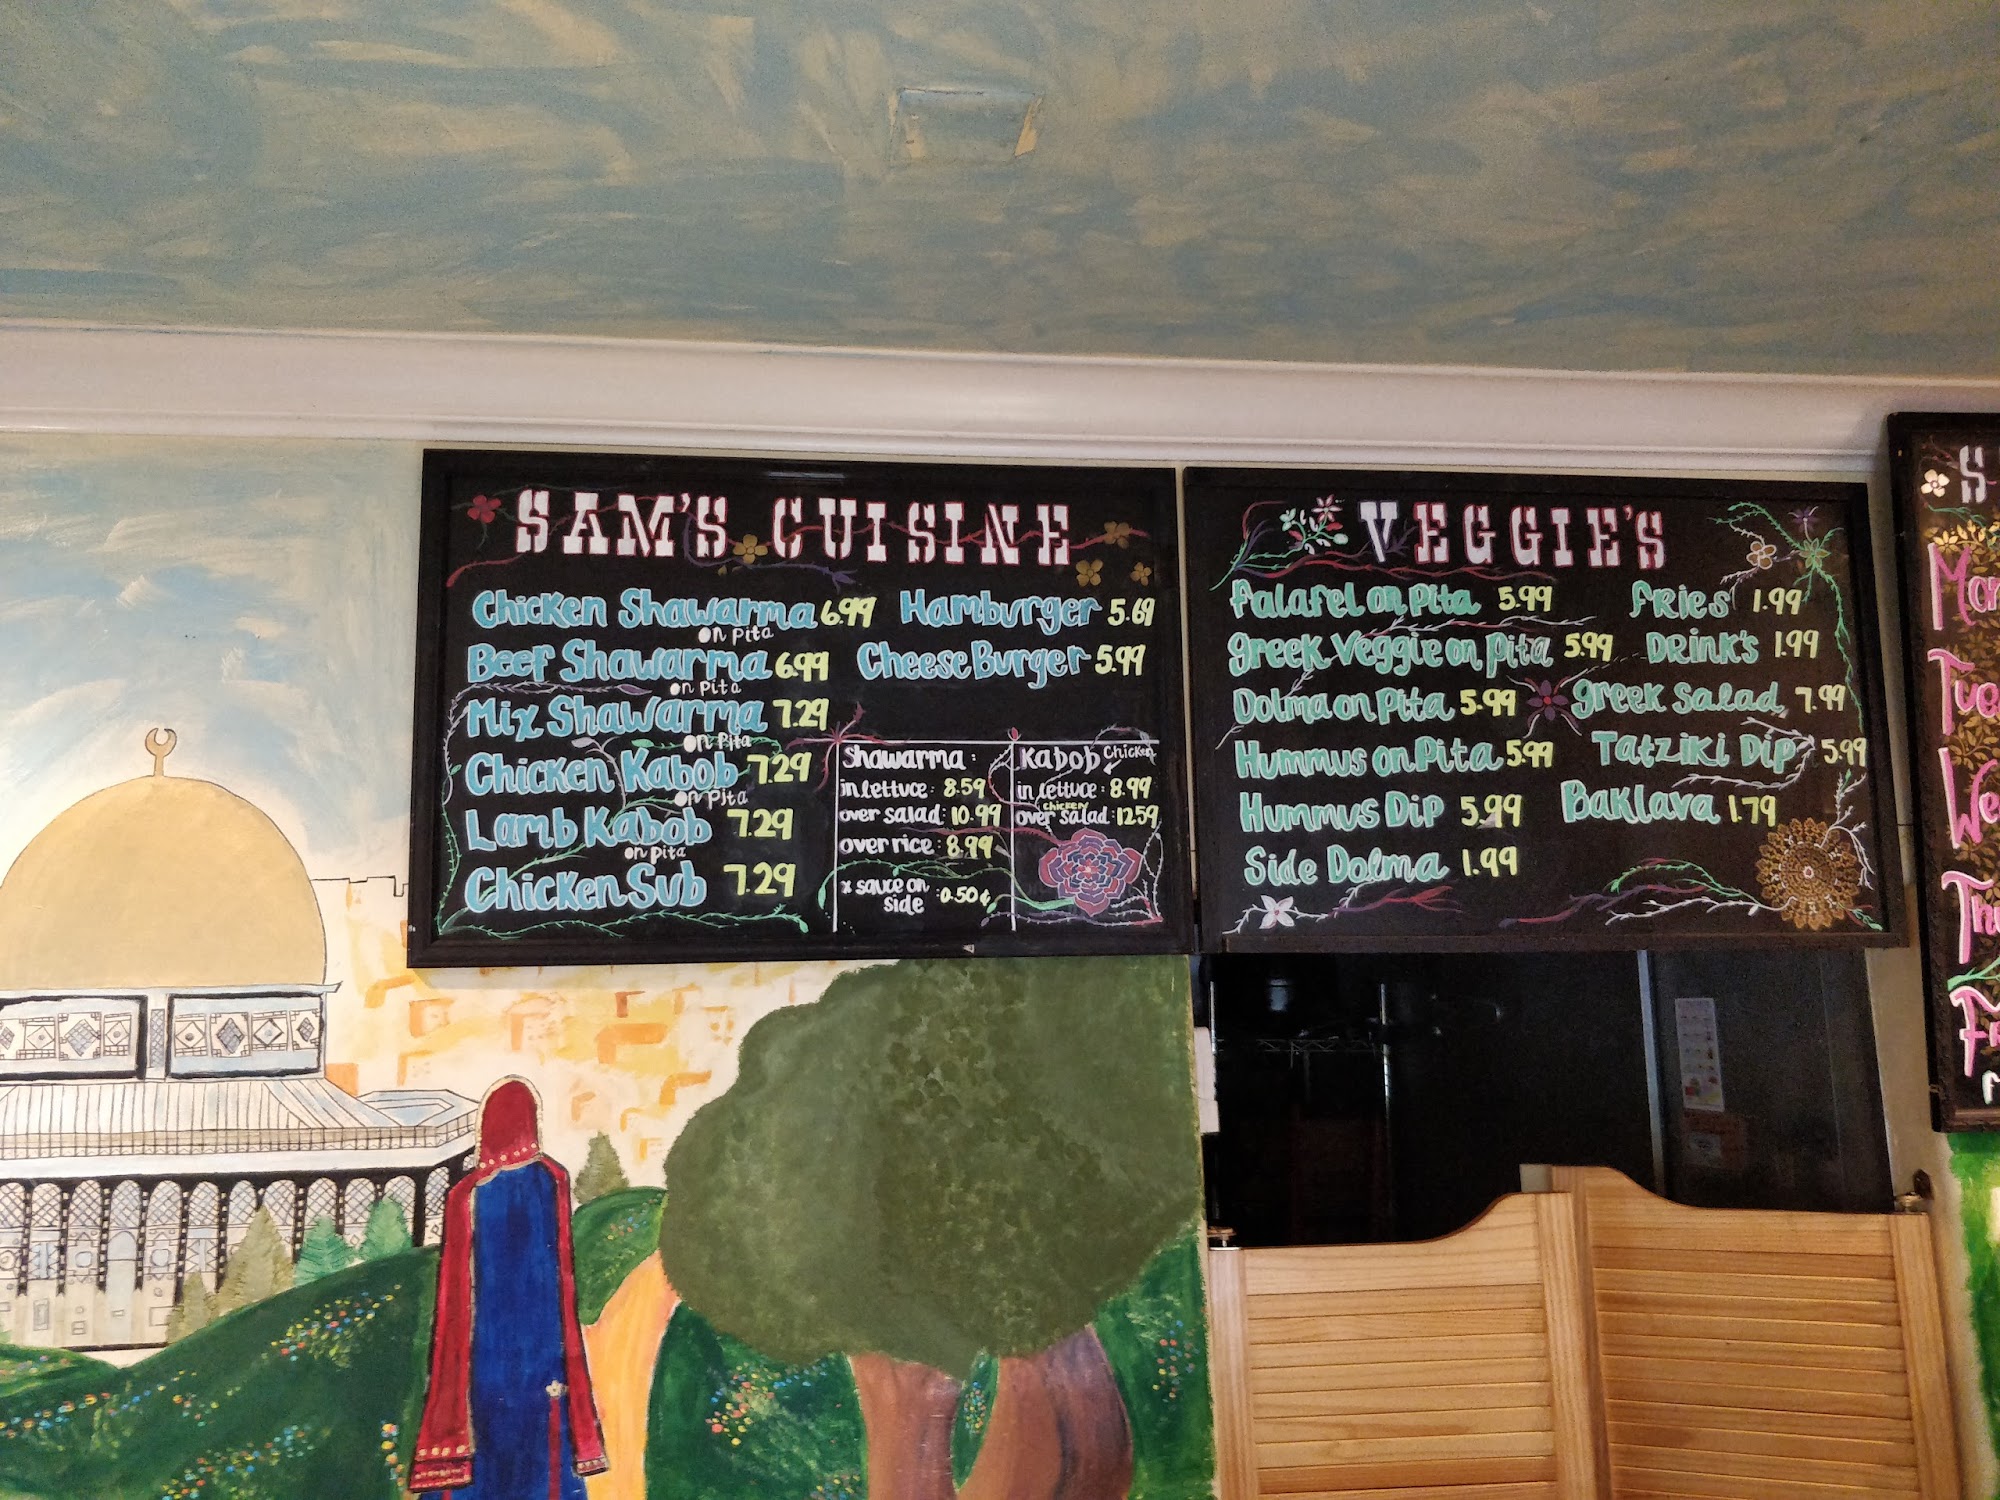 SAM'S CUISINE
Chicken Shawarma 6.99
on pita
Beef Shawarma 6.99
on pita
Mix Shawarma 7.29
on pita
Chicken Kabob 7.29
on pita
Lamb Kabob 7.29
on pita
Chicken Sub 7.29
Hamburger 5.69
Cheese Burger 5.99
Shawarma:
in lettuce: 8.59
over salad: 10.99
over rice: 8.99
x sauce on side :0.50¢
Kabob Chicken
in lettuce: 8.99
chicken
over salad: 12.59
VEGGIE'S
Falafel on Pita 5.99
Greek Veggie on Pita 5.99
Dolma on Pita 5.99
Hummus on Pita 5.99
Hummus Dip 5.99
Side Dolma 1.99
Fries 1.99
Drink's 1.99
Greek Salad 7.99
Tatziki Dip 5.99
Baklava 1.79
S
Mon
Tue
We
Thu